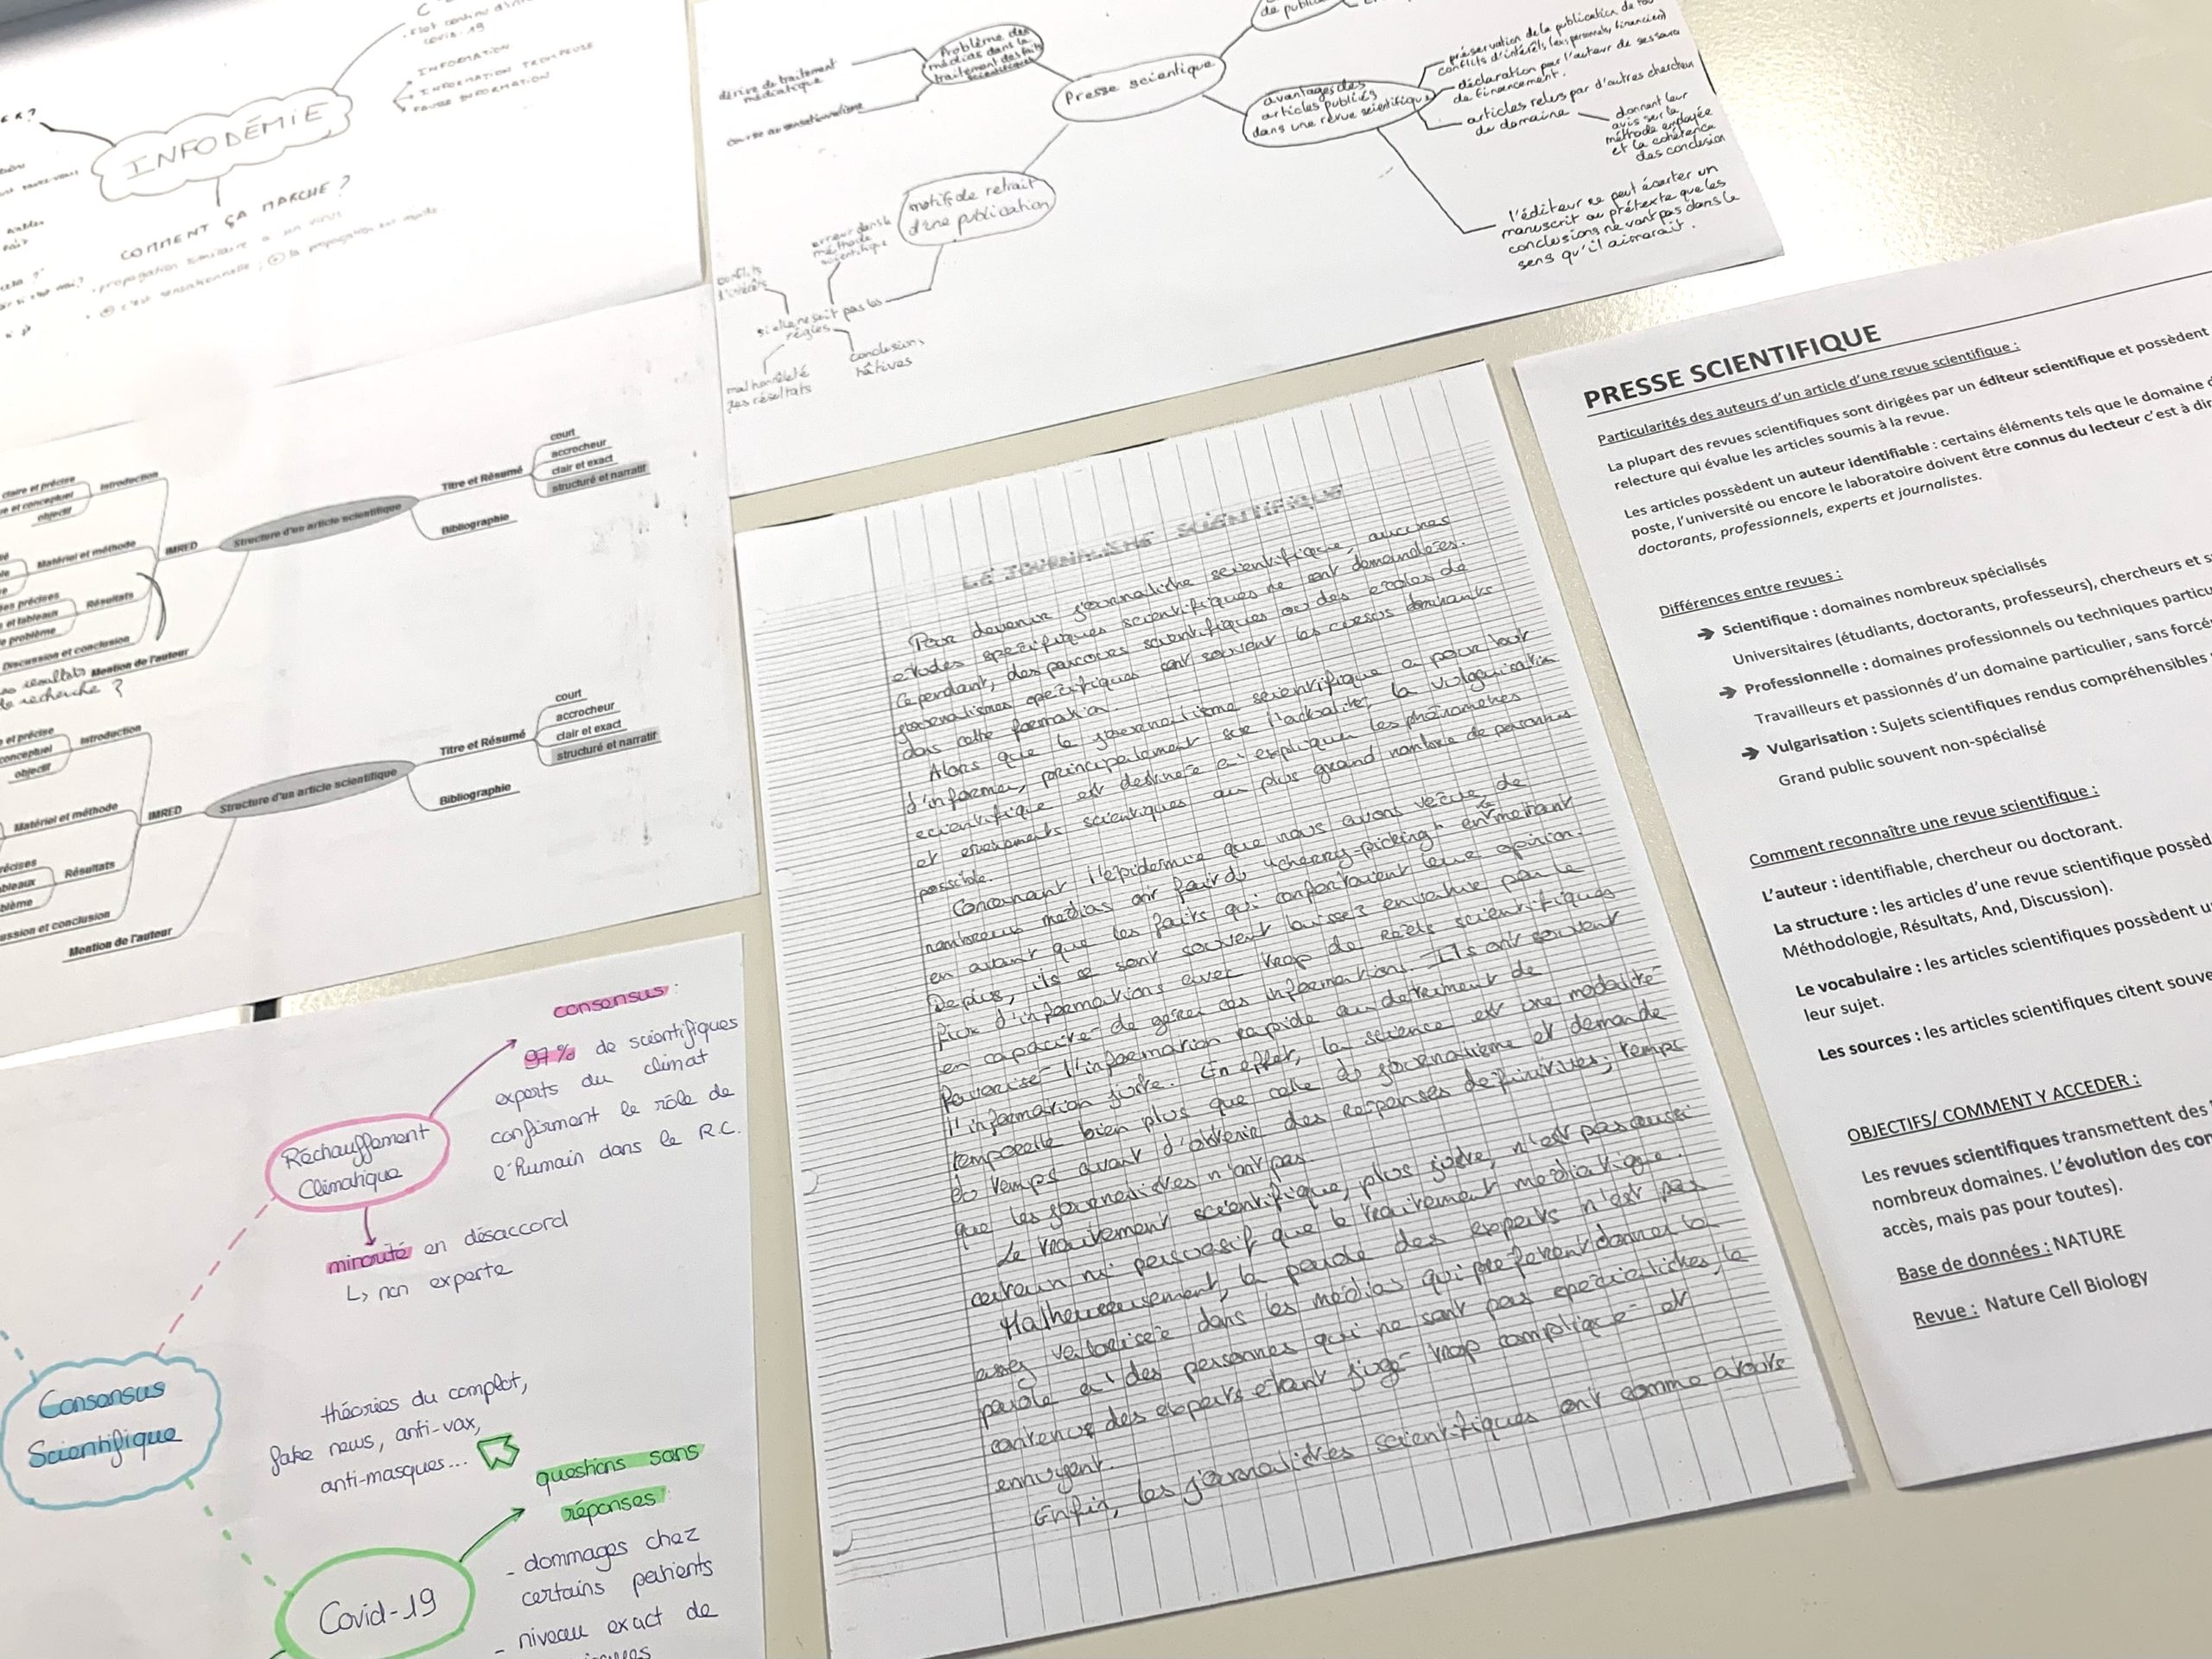 covid-19
INFORMATION
INFORMATION TROMPEUSE
FAUSSE INFORMATION
INFODÉMIE
COMMENT ÇA MARCHE ?
propagation similaire à un virus
Problème des
médias dans le
traitement des faits
scientifiques
dérive de traitement
médiatique
course au sensationnalisme
Presse scientique
avantages des
articles publiés
dans une revue scientifique
préservation de la publication de
conflits d'intérêts (ex: personnels, financiers)
déclaration par l'auteur de ses
de financement.
articles relus par d'autres chercheurs
du domaine
donnent leur
avis sur la
méthode employée
et la cohérence
des conclusion
l'éditeur ne peut écarter un
manuscrit au prétexte que les
conclusions ne vont pas dans le
sens qu'il aimerait.
motifs de retrait
d'une publication
erreur dans la
méthode
scientifique
conflits
d'intérêts
si elle ne suit pas les
règles
malhonnêteté
des résultats
conclusions
hâtives
claire et précise
et conceptuel
objectif
Introduction
Matériel et méthode
IMRED
Résultats
Discussion et conclusion
Mention de l'auteur
Structure d'un article scientifique
Titre et Résumé
court
accrocheur
clair et exact
structuré et narratif
Bibliographie
résultats
recherche ?
et précise
conceptuel
objectif
Introduction
Matériel et méthode
IMRED
Résultats
et conclusion
Mention de l'auteur
Structure d'un article scientifique
Titre et Résumé
court
accrocheur
clair et exact
structuré et narratif
Bibliographie
consensus:
97% de scientifiques
experts du climat
confirment le rôle de
l'humain dans le R.C.
Réchauffement
Climatique
minorité en désaccord
↳ non experte
Consensus
Scientifique
théories du complot,
fake news, anti-vax,
anti-masques...
questions sans
réponses:
Covid-19
- dommages chez
certains patients
- niveau exact de
LE JOURNALISME SCIENTIFIQUE
Pour devenir journaliste scientifique, aucunes
études spécifiques scientifiques ne sont demandées.
Cependant, des parcours scientifiques ou des écoles de
journalismes spécifiques sont souvent les cursus dominants
dans cette formation.
Alors que le journalisme scientifique a pour but
d'informer, principalement sur l'actualité, la vulgarisation
scientifique est destinée à expliquer les phénomènes
et évènements scientifiques au plus grand nombre de personnes
possible.
Concernant l'épidémie que nous avons vécue, de
nombreux médias ont fait du "cherry-picking" en mettant
en avant que les faits qui confortaient leur opinion.
Depuis, ils se sont souvent laissez envahir par le
flux d'informations avec trop de réels scientifiques
en capacité de gérer ces informations. Ils ont souvent
favorisé l'information rapide au détriment de
l'information juste. En effet, la science est une modalité
temporelle bien plus que celle du journalisme et demande
du temps avant d'obtenir des réponses définitives; temps
que les journalistes n'ont pas.
Le traitement scientifique, plus juste, n'est pas aussi
certain ni persuasif que le traitement médiatique.
Malheureusement, la parole des experts n'est pas
assez valorisée dans les médias qui préfèrent donner la
parole à des personnes qui ne sont pas spécialistes, le
contenu des experts étant jugé trop compliqué et
ennuyant.
Enfin, les journalistes scientifiques ont comme atouts
PRESSE SCIENTIFIQUE
Particularités des auteurs d'un article d'une revue scientifique :
La plupart des revues scientifiques sont dirigées par un éditeur scientifique et possèdent
relecture qui évalue les articles soumis à la revue.
Les articles possèdent un auteur identifiable : certains éléments tels que le domaine
poste, l'université ou encore le laboratoire doivent être connus du lecteur c'est à dir
doctorants, professionnels, experts et journalistes.
Différences entre revues :
➔ Scientifique : domaines nombreux spécialisés
Universitaires (étudiants, doctorants, professeurs), chercheurs et
➔ Professionnelle : domaines professionnels ou techniques particu
Travailleurs et passionnés d'un domaine particulier, sans forcé
➔ Vulgarisation : Sujets scientifiques rendus compréhensibles
Grand public souvent non-spécialisé
Comment reconnaître une revue scientifique :
L'auteur : identifiable, chercheur ou doctorant.
La structure : les articles d'une revue scientifique possèd
Méthodologie, Résultats, And, Discussion).
Le vocabulaire : les articles scientifiques possèdent
leur sujet.
Les sources : les articles scientifiques citent souve
OBJECTIFS/ COMMENT Y ACCEDER :
Les revues scientifiques transmettent des
nombreux domaines. L'évolution des con
accès, mais pas pour toutes).
Base de données : NATURE
Revue : Nature Cell Biology